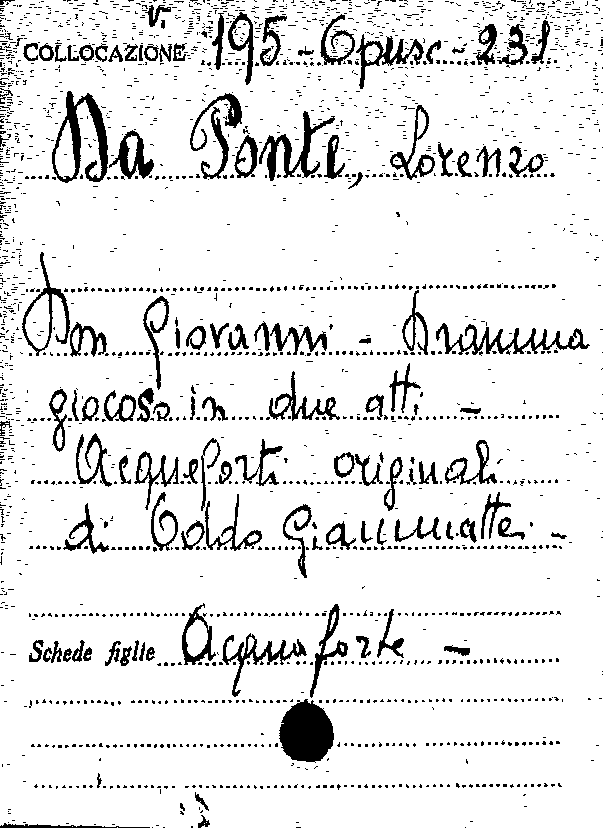 v.
COLLOCAZIONE 195-Opusc-231
Da Ponte, Lorenzo
Don Giovanni - Dramma
giocoso in due atti -
Acqueforti originali
di Toldo Giammattei -
Schede figlie Acquaforte -